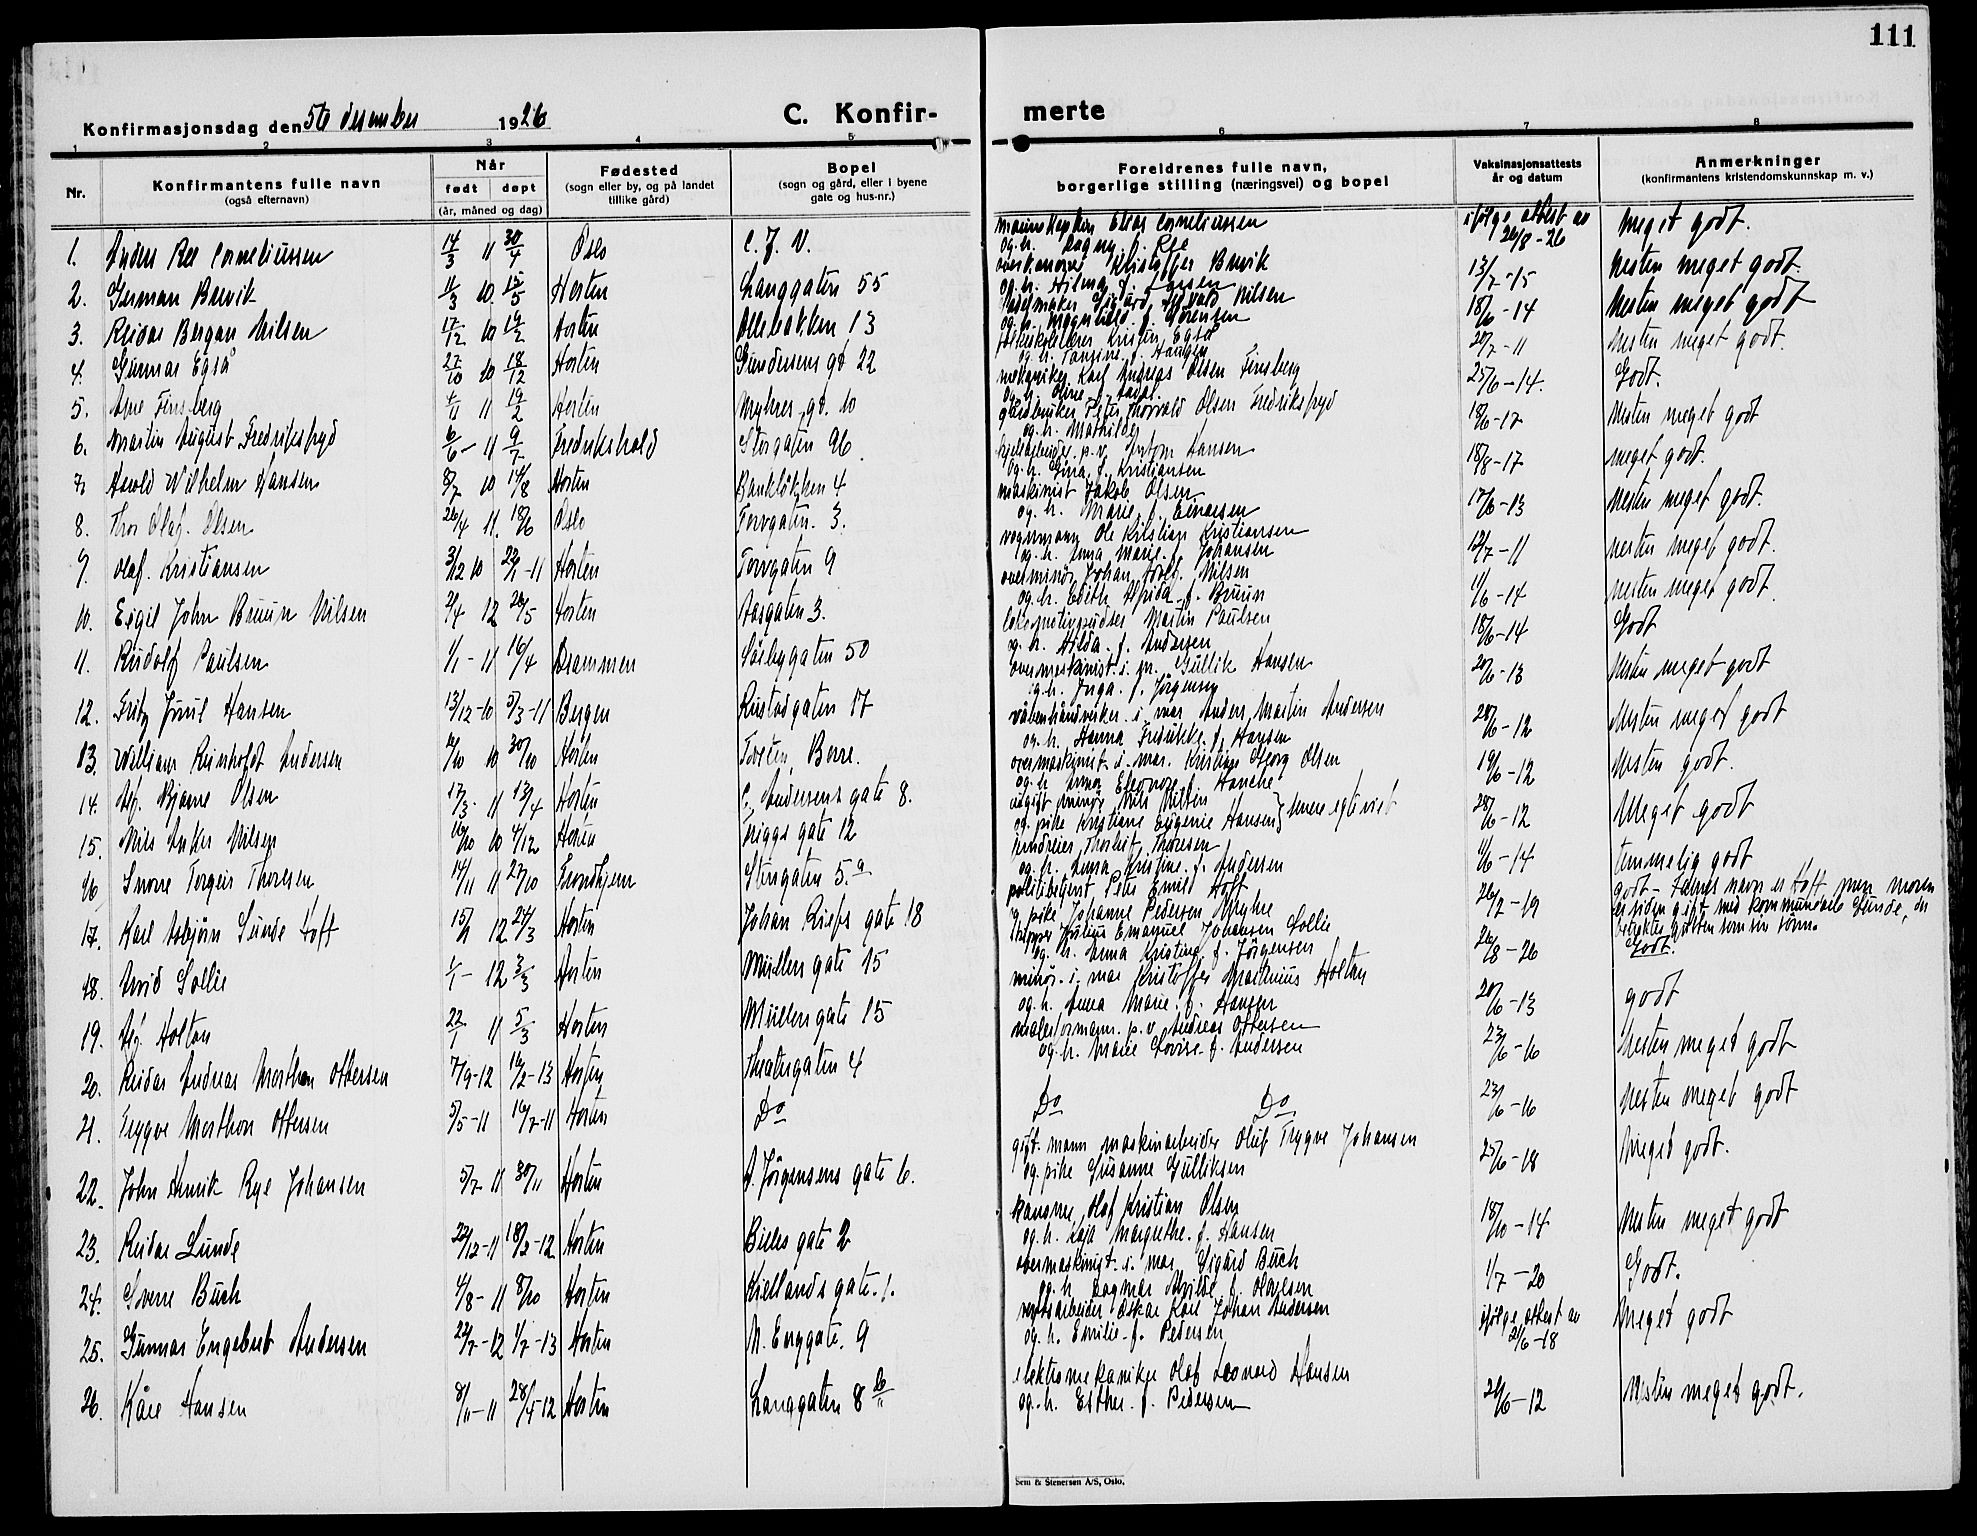 111
Konfirmasjonsdag den 5te desember 1926
C. Konfir-
merte
1 2 3 4 5 6 7 8
Nr.
Konfirmantens fulle navn
(også efternavn)
Når
født døpt
(år, måned og dag)
Fødested
(sogn eller by, og på landet
tillike gård)
Bopel
(sogn og gård, eller i byene
gate og hus-nr.)
Foreldrenes fulle navn,
borgerlige stilling (næringsvei) og bopel
Vaksinasjonsattests
år og datum
Anmerkninger
(konfirmantens kristendomskunnskap m. v.)
1. Anders Ree Corneliussen 14/3 11 30/4 Oslo C. J. V. Elias Corneliussen ifølge attest av
og h. Dagny f. Ree 26/8-26 Meget godt.
2. German Buvik 11/3 10 15/5 Horten Langgaten 55 Kristoffer Buvik 13/7-15 Nesten meget godt.
og h. Hilma f. Larsen
3. Reidar Bergan Nilsen 17/12 10 19/2 Horten 13 Sigurd Nilsen 18/6-14 Nesten meget godt
og h. Magnhild f. Sørensen
4. Gunnar Egså 27/10 10 18/12 Horten Gundersens gt 22 Kristen Egså 20/7-11 Nesten meget godt.
og h. f. Haugen
5. Arne Finsberg 4/11 11 19/2 Horten Myhres gt. 10 mekaniker Karl Andreas Olsen Finsberg 25/6-14. Godt.
og h. Oline f.
6. Martin August Fredriksfryd 6/6-11 9/7 Fredrikshald Storgaten 96 Peter Thorvald Olsen Fredriksfryd 18/6-17 Nesten meget godt
og h. Mathilde
7. Wilhelm Hansen 8/7 10 14/8 Horten Bankløkken 4 p.v. Anton Hansen 18/8-17 meget godt.
og h. Gina f. Kristiansen
8. Thor Olaf Olsen 26/4 11. 18/6 Oslo Torvgaten. 3. maskinist Jakob Olsen 17/6-13 Nesten meget godt.
og h. Marie f. Einarsen
9. Olaf Kristiansen 3/12 10 22/1-11 Horten Torvgaten 9 vognmann Ole Kristian Kristiansen 12/7-11 Nesten meget godt.
og h. Anna Marie f. Johansen
10. Eigil John Bruun Nilsen 2/4 12 26/5 Horten Aasgaten 3. overminør Johan Nilsen 11/6-14 Nesten meget godt
og h. Edith f. Bruun
11. Rudolf Paulsen 1/1-11 16/4 Drammen Sørbygaten 50 lokomotivpudser Martin Paulsen 18/6-14 Godt
og h. Hilda f. Andersen
12. Fritz Juul Hansen 13/12-10 5/3-11 Bergen Rustadgaten 17 overmaskinist i m. Gullik Hansen 20/6-13 Nesten meget godt
og h. Inga f. Jørgensen
13. William Reinholdt Andersen 10 30/10 Horten Borre. våbenhåndverker i mar Anders Martin Andersen 28/6-12 Nesten meget godt
og h. Hanna Fredrikke f. Hansen
14. Bjarne Olsen 17/3 11 13/4 Horten C. Andersens gate 8. overmaskinist i mar. Kristian Georg Olsen 19/6-12 Nesten godt.
og h Anna Eleonore f. Hanche
15. Nils Anker Nilsen 16/10 10 4/12 Horten Briggs gate 12 ugift minør Nils Nilsen 28/6-12 Meget godt
og pike Kristiane Eugenie Hansen } senere egteviet
16 Snorre Torgeir Thoresen 14/11 11 27/10 Trondhjem Stengaten 5.a Thorleif Thoresen 11/6-14 temmelig godt
og h. Anna Kristine f. Andersen
17. Karl Asbjørn Sunde Hoft 15/1 12 24/3 Horten Johan Riefs gate 18 politibetjent Peter Emil Hoft 26/2-19 godt - Farens navn er Hoft men moren
og pike Johanne Pedersen Myhre er siden gift med Kommandørk Sunde, der
betrakter gutten som sin sønn.
18. Arvid Sollie 1/1-12 3/3 Horten Müllers gate 15 Julius Emanuel Johansen Sollie 26/8-26 Godt.
og h. Anna Kristine f. Jørgensen
19. Holtan 22/1 11 5/3 Horten Müllers gate 15 minør i mar Kristoffer Mathinius Holtan 20/6-13 godt
og h. Anna Marie f. Hansen
20. Reidar Andreas Morthon Ottersen 7/9-12 16/2-13 Horten Theatergaten 4 malerformann p.v Andreas Ottersen 23/6-16 Nesten meget godt
og h. Marie Lovise f. Andersen
21. Trygve Morthon Ottersen 5/5-11 16/7-11 Horten Do Do Do 23/6-16 Nesten meget godt
22. John Henrik Rye Johansen 5/7-11 30/11 Horten A. Jørgensens gate 6. gift mann maskinarbeider Oluf Trygve Johansen 25/6-18 Meget godt.
og pike Susanne Gulliksen
23. Reidar Lunde 22/12-11 18/2-12 Horten Billes gate 2 kanoner Olaf Kristian Olsen 18/10-14 Nesten meget godt
og h. Kaja Margrethe f. Hansen
24. Sverre Buch 4/8-11 8/10 Horten Kiellands gate. 1. overmaskinist i mar Sigurd Buch 1/7-20 Godt.
og h Dagmar f. Olavesen
25. Gunnar Engebret Andersen 22/7-12 1/7-13 Horten N. Enggate. 9 verftsarbeider Oskar Karl Johan Andersen ifølge attest av
og h. Emilie f. Pedersen 21/6-18 Meget godt
26. Kåre Hansen 8/11-11 28/4-12 Horten Langgaten 8 b elektromekaniker Olaf Leonard Hansen 20/6-12 Nesten meget godt.
og h. Esther f. Pedersen
Sem & Stenersen A/S, Oslo.